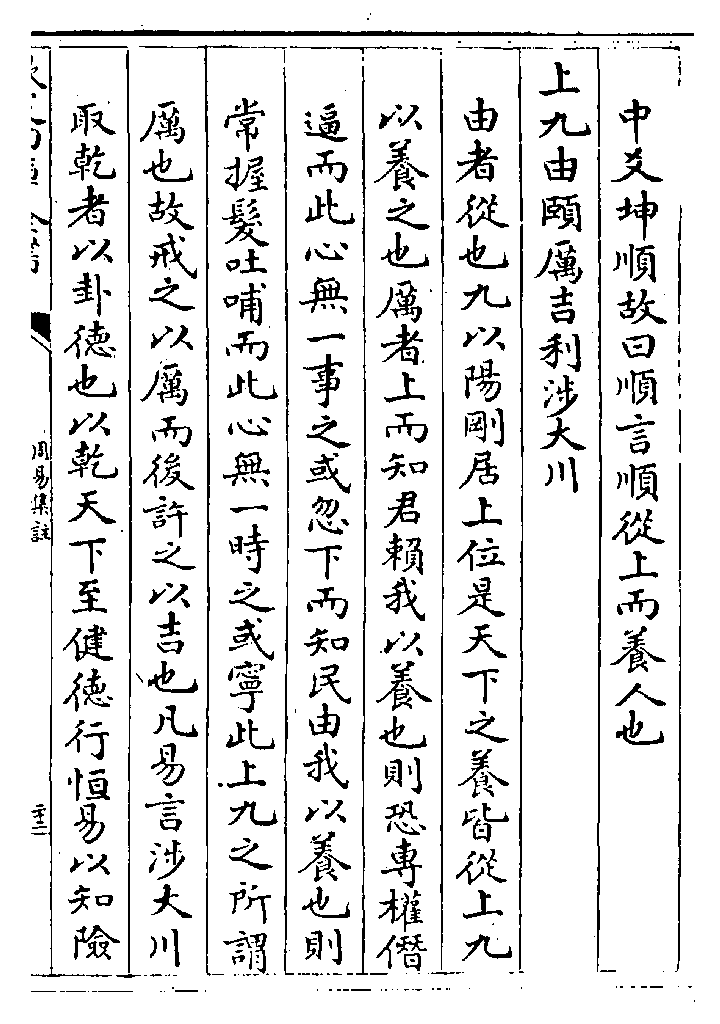 中爻坤順故曰順言順從上而養人也
上九由頤厲吉利涉大川
由者從也九以陽剛居上位是天下之養皆從上九
以養之也厲者上而知君賴我以養也則恐專權僭
逼而此心無一事之或忽下而知民由我以養也則
常握髮吐哺而此心無一時之或寧此上九之所謂
厲也故戒之以厲而後許之以吉也凡易言涉大川
取乾者以卦德也以乾天下至健德行恒易以知險
周易集註